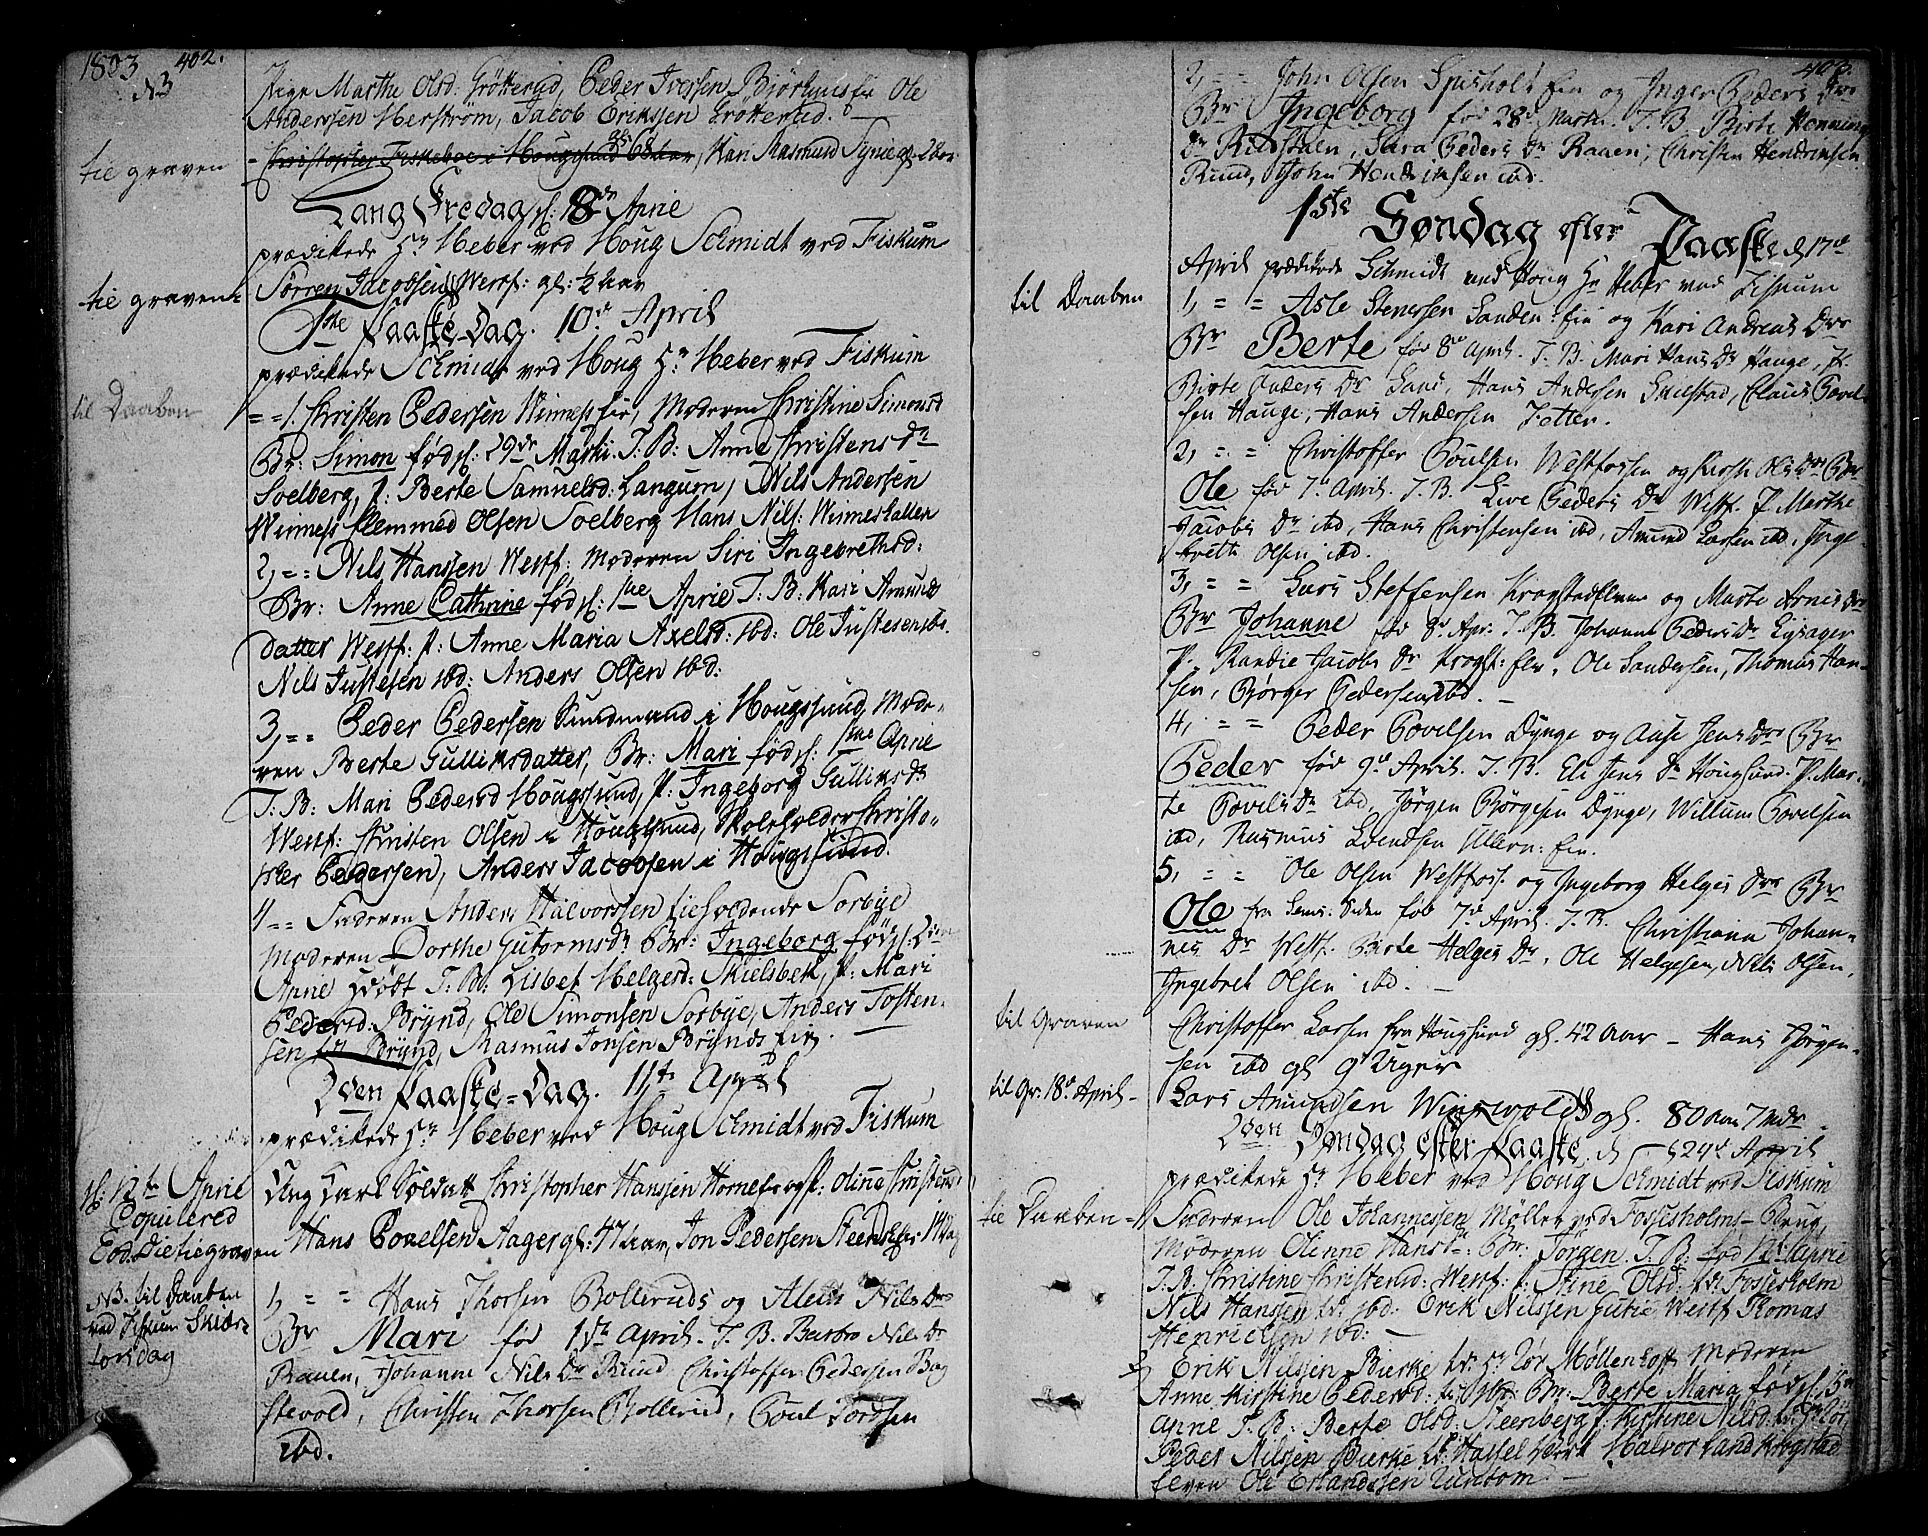 1803 402.
N3
Pige Marthe Olsd: Grötterud, Peder Iverssen Biörhuus fir Ole
Anderssen Herström, Jacob Erikssen Grötterud.
til graven
Kari Rasmusd
Lang Fredag d: 8de April
prædikede Hr Heber ved Houg Schmidt ved Fiskum
til graven
Sörren Jacobsen Westf: gl: ½ aar
1ste Paaske-Dag. 10de April
prædikede Schmidt ved Houg Hr Heber ved Fiskum
til Daaben
1. Christen Pedersen Winness fir, Moderen Christine Simonsd
Br: Simon föd d: 29de Martii. T. B: Anne Christens dr
Soelberg, P: Berte Samuelsd: Langum, Nils Andersen
Winness Clemmed Olsen Soelberg Hans Nils: Winneshallen
2, = = Nils Hanssen Westf: Moderen Siri Ingebrethsd:
Br: Anne Cathrine föd d: 1ste April T. B: Kari Amunds
datter Westf: P: Anne Maria Axelsd: ibd: Ole Justesen ibd.
Nils Justesen ibd: Anders Olsen ibd:
3, = = Peder Pedersen Sundmand i Hougssund, Mode-
ren Berte Gulliksdatter, Br: Mari föd d: 1ste April
T. B: Mari Pedersd Hougssund, P: Ingeborg Gulliksdr
Westf: Christen Olsen i Hougssund, Skoleholder Christo-
pher Pedersen, Anders Jacobsen i Hougssund.
4 = = Faderen Anders Halvorssen tilholdende Sorbye
Moderen Dorthe Gutormsdr Br: Ingeborg föd d: 2den
April T. B: Lisbet Helgesd: Skielsbek, P: Mari
Pedersd: Brynd, Ole Simonsen Sorbye, Anders Tosten-
sen Brynd, Rasmus Jonsen Brynds fir.
2den Paaske-Dag. 11te April
prædikede Hr Heber ved Houg Schmidt ved Fiskum
d: 12te April
Copulered
Ung Karl Soldat Christopher Hanssen Horne og P: Oline Christensd:
Eod. Die til graven
Hans Povelsen Aager gl: 47 aar, Jon Pedersen
NB. til Daaben
ved Fiskum Skiær
torsdag
1, = = Hans Thorsen Bollerud og Aleth Nils Dr
Br Mari föd 1ste April. T. B. Barbro Nils Dr
Rauen, Johanne Nils Dr Ruud Christoffer Pedersen Bag
stevold, Christen Thorsen Bollerud, Poul Tordsen
ibd.
403.
2, = = John Olsen Spisholt fir og Inger Peders Dr
Br Ingeborg föd 28de Marti. T. B. Berte Hennings
Dr Rudstaen, Sara Peders Dr Raaen, Christen Hendrichsen
Ruud, John Hendrichsen ibd.
1ste Søndag efter Paaske d 17de
April prædikede Schmidt ved Houg Hr Heber ved Fiskum
til Daaben
1, = = Asle Stenersen Sanden fir og Kari Andreas Dr
Br Berte föd 8de April. T. B. Mari Hans Dr Hauge, P.
Birte Anders Dr Sand, Hans Andersen Smestad, Claus Povel-
sen Hauge, Hans Andersen Jetter.
2, = = Christoffer Poulsen Westfossen og Kirsti Ols Dr Br
Ole föd 7de April. T. B. Live Peders Dr Westf. P. Marthe
Jacobs Dr ibd, Hans Christensen ibd, Amund Larsen ibd, Inge
breth Olsen ibd.
3, = = Lars Steffensen Krogstadelven og Marte Arnes Dr
Br Johanne föd 8de Apr: T. B. Johanne Peders Dr Eysager
P. Randie Jacobs Dr Krogst: elv, Ole Sandersen, Thomas Han-
sen, Börger Pedersen ibd.
4, = = Peder Povelsen Dynge og Aase Jens Dr Br
Peder föd 9de April. T. B. Eli Jens Dr Hougsund. P. Mar-
te Povels Dr ibd, Jörgen Börgesen Dynge, Willum Povelsen
ibd, Rasmus Svendsen Ullern: fir.
5, = = Ole Olsen Westfoss. og Ingeborg Helges Dr Br
Ole föd 7de April. T. B. Christiana Johan-
nes Dr Westf. Berte Helges Dr, Ole Helgesen, Nils Olsen,
Ingebret Olsen ibd.
til Graven
Christoffer Larsen fra Hougsund gl. 42 Aar – Hans Jörgen-
sen ibd gl 9 Uger
til Gr: 18de April
Lars Amundsen Wingvold gl. 80 aar 7 Mdr
2den Søndag efter Paaske, d 24de April
prædikede Hr Heber ved Houg Schmidt ved Fiskum
til Daaben
Faderen Ole Johannessen Möller ved Fossesholms-Brug,
Moderen Olinne Hansd: Br: Jörgen. T. B: föd 12te April
T. B. Christine Christensd: Westf: P: Stine Olsd: tt Fossesholm
Nils Hansen tt ibd: Erik Nilssen Westf Thomas
Henrichsen ibd:
2, Erik Nilsen Bierke Moderen
Anne Kirstine Pedersd: Br: Berte Maria föd d: 5te
April T. B: Berte Olsd: Steenberg P: Kirstine Nilsd:
Peder Nilssen Bierke Hassel Værk Halvor Krogstad
elven Ole Erlandssen Tuntom